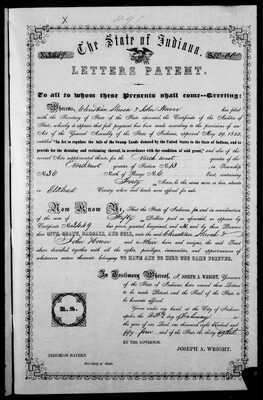 X
The State of Indiana.
LETTERS PATENT.
To all to whom these Presents shall come—Greeting:
Whereas, Christian & John has filed
with the Secretary of State of this State aforesaid the Certificate of the Auditor of
State, whereby it appears that full payment has been made according to the provisions of an
Act of the General Assembly of the State of Indiana, approved May 29, 1852,
entitled "An Act to regulate the Sale of the Swamp Lands donated by the United States to the State of Indiana, and to
provide for the draining and reclaiming thereof, in accordance with the condition of said grant," and also of the
several Acts supplemental thereto, for the North west quarter of
the quarter of Section No 13 in Township
No 36 North of Range No 6 East, containing
Forty Acres, be the same more or less, situate
in Elkhart County when said lands were offered for sale.
Now Know Ye, That the State of Indiana, in consideration
of the sum of Fifty Dollars paid as aforesaid, as appears by
Certificate No
GIVE, GRANT, BARGAIN, SELL, unto the said Christian &
John
and to their Heirs and assigns, the said Tract
above described together with all the rights, privileges, immunities, and appurtenances of
whatsoever nature thereunto belonging TO HAVE AND TO HOLD THE SAME FOREVER.
In Testimony Whereof, I, JOSEPH A. WRIGHT, Governor
of the State of Indiana have caused these Letters
to be made Patent and the Seal of the State to
be hereunto affixed.
Given under my hand, at the City of Indianapolis,
the day of February
the year of our Lord one thousand eight hundred and
fifty four and of the State the thirty eighth
L.S.
BY THE GOVERNOR.
JOSEPH A. WRIGHT.
NEHEMIAH HAYDEN
Secretary of State.